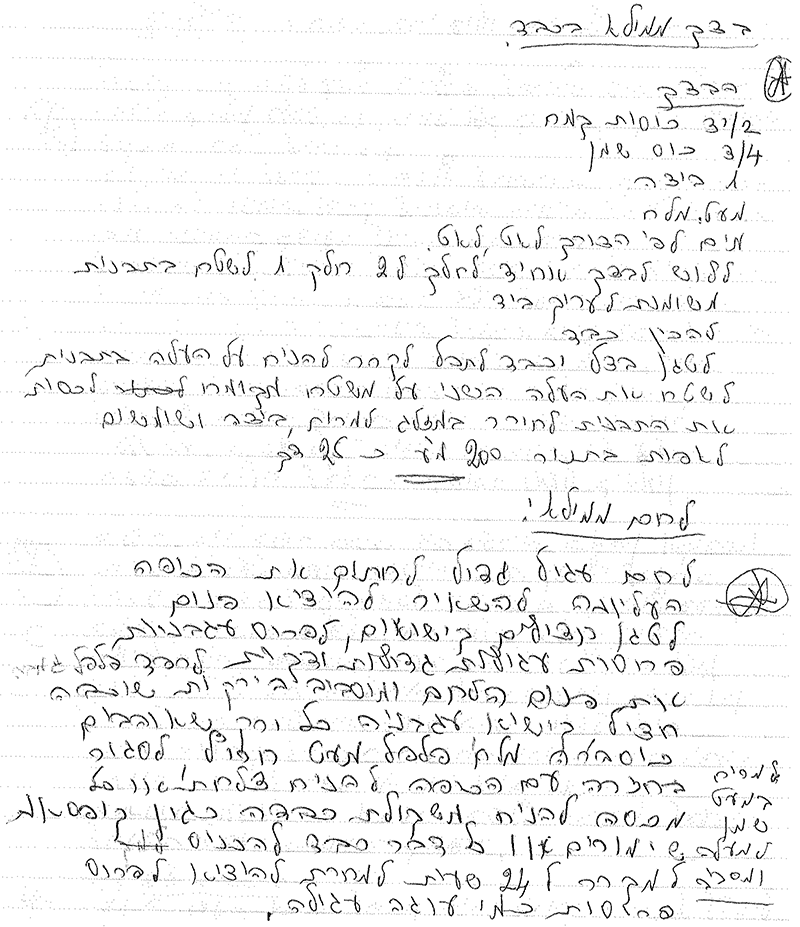 בצק ממולא בכבד.
הבצק
2/יצ כוסות קמח
3/4 כוס שמן
1 ביצה
מעט מלח
מים לפי הצורך לאט, לאט.
ללוש לבצק אוחיד לחלק ל2 חלק 1 לשטח בתבנית
משומנת לערוך ביד
להכין כבד
לטגן בצל וכבד לתבל לקרר להניח על העלה בתבנית
לשטח את העלה השני על משטח מקומח לכסות
את התבנית לחורר במזלג למרוח ביצה ושומשום
לאפות בתנור 200 מ"ע כ 25 דק
לחם ממולא:
לחם עגול גדול לחתוך את הכיפה
העליונה להשאיר להוציא פנים
לטגן חצילים קישואים, לפרוס עגבניות
פרוסות עגולות גדולות ודקות לרפד פלפל גמבה
את פנים הלחם ומסביב בירקות שכבה
חציל קישוא עגבניה כל ירק שאוהבים
כוסברה מלח פלפל מעט חריף לסגור
בחזרה עם הכיפה להניח צלחת או כל
מכסה להניח משקולת כבדה כגון קופסאות
שימורים או כל דבר כבד להכניס
למקרר ל 24 שעות למחרת להוציא לפרוס
פרוסות כמו עוגה עגולה.
למרוח
במעט
שמן
למעלה
ומסביב